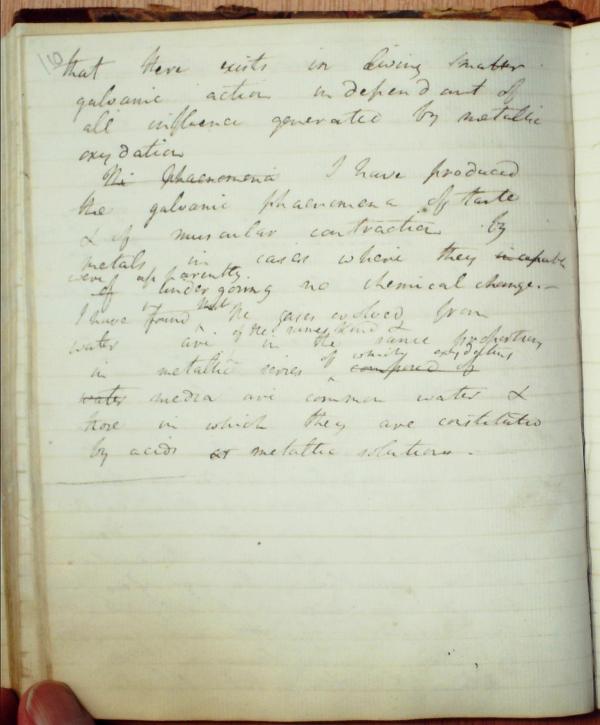 16
that there exists in living matter
galvanic action independant of
all influence generated by metallic
oxydation
The Phaenomena I have produced
the galvanic phaenomena of taste
& of muscular contraction by
metals in cases where they incapable
were apparently
of undergoing no chemical change. –
I have found that the gases evolved from
of the same kind &
water are in the same proportion
in metallic series of which oxydating
composed of
water media are common water &
those in which they are constituted
by acids or metallic solutions. –